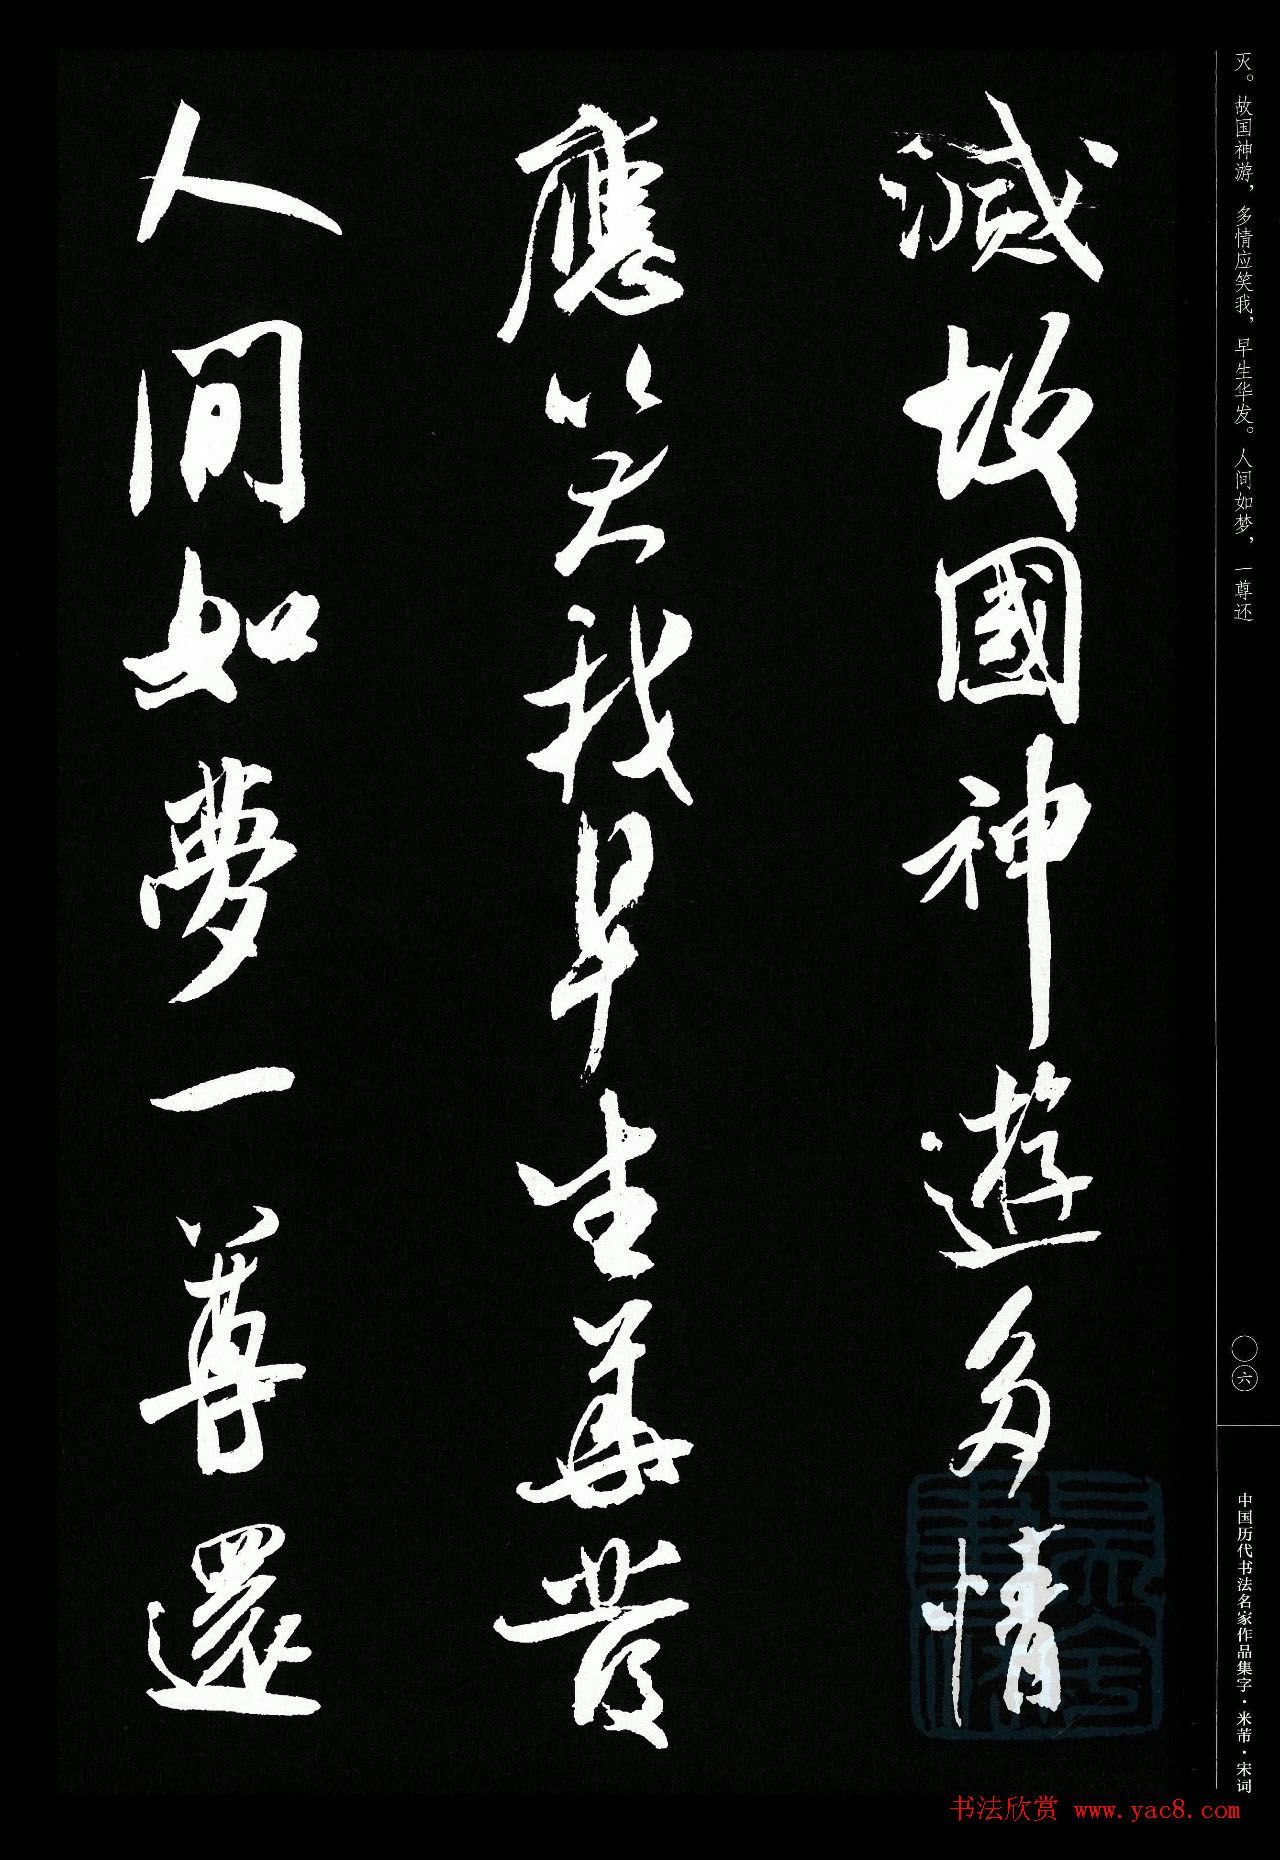 滅故國神遊多情
應笑我早生華發
人間如夢一尊還
灭。故国神游，多情应笑我，早生华发。人间如梦，一尊还
〇六
中国历代书法名家作品集字·米芾·宋词
书法欣赏 www.yac8.com